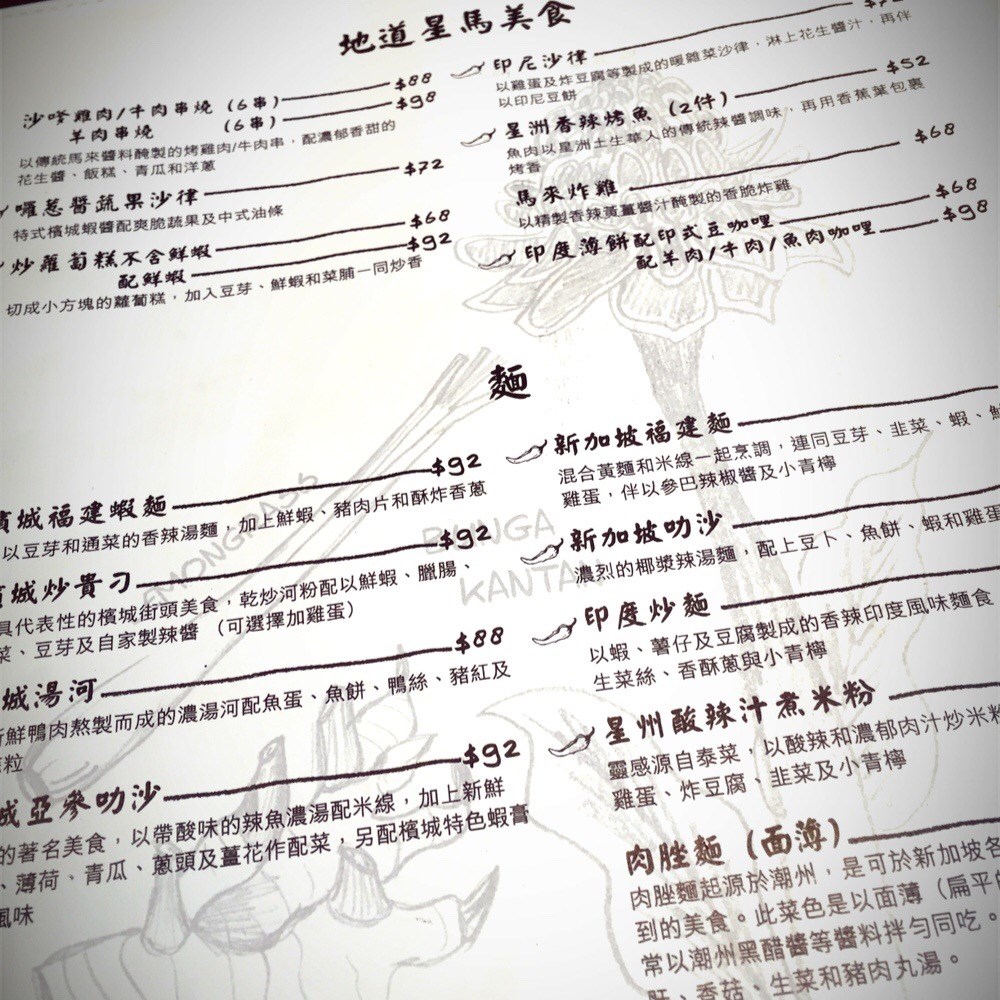 地道星馬美食
沙嗲雞肉/牛肉串燒 (6串) $88
羊肉串燒 (6串) $98
以傳統馬來醬料醃製的烤雞肉/牛肉串，配濃郁香甜的
花生醬、飯糕、青瓜和洋蔥
囉惹醬蔬果沙律 $72
特式檳城蝦醬配爽脆蔬果及中式油條
炒蘿蔔糕不含鮮蝦 $68
配鮮蝦 $92
切成小方塊的蘿蔔糕，加入豆芽、鮮蝦和菜脯一同炒香
印尼沙律
以雞蛋及炸豆腐等製成的暖雜菜沙律，淋上花生醬汁，再伴
以印尼豆餅
星洲香辣烤魚 (2件) $52
魚肉以星洲土生華人的傳統辣醬調味，再用香蕉葉包裹
烤香
馬來炸雞 $68
以精製香辣黃薑醬汁醃製的香脆炸雞
印度薄餅配印式豆咖哩 $68
配羊肉/牛肉/魚肉咖哩 $98
麵
城福建蝦麵 $92
以豆芽和通菜的香辣湯麵，加上鮮蝦、豬肉片和酥炸香蔥
城炒貴刁 $92
具代表性的檳城街頭美食，乾炒河粉配以鮮蝦、臘腸、
菜、豆芽及自家製辣醬 （可選擇加雞蛋）
城湯河 $88
新鮮鴨肉熬製而成的濃湯河配魚蛋、魚餅、鴨絲、豬紅及
粒
城亞參叻沙 $92
的著名美食，以帶酸味的辣魚濃湯配米線，加上新鮮
、薄荷、青瓜、蔥頭及薑花作配菜，另配檳城特色蝦膏
風味
新加坡福建麵
混合黃麵和米線一起烹調，連同豆芽、韭菜、蝦、
雞蛋，伴以參巴辣椒醬及小青檸
新加坡叻沙
濃烈的椰漿辣湯麵，配上豆卜、魚餅、蝦和雞蛋
印度炒麵
以蝦、薯仔及豆腐製成的香辣印度風味麵食
生菜絲、香酥蔥與小青檸
星州酸辣汁煮米粉
靈感源自泰菜，以酸辣和濃郁肉汁炒米粉
雞蛋、炸豆腐、韭菜及小青檸
肉脞麵 (面薄)
肉脞麵起源於潮州，是可於新加坡各
到的美食。此菜色是以面薄（扁平的
常以潮州黑醋醬等醬料拌勻同吃。
肝、香菇、生菜和豬肉丸湯。
BUNGA
KANTA